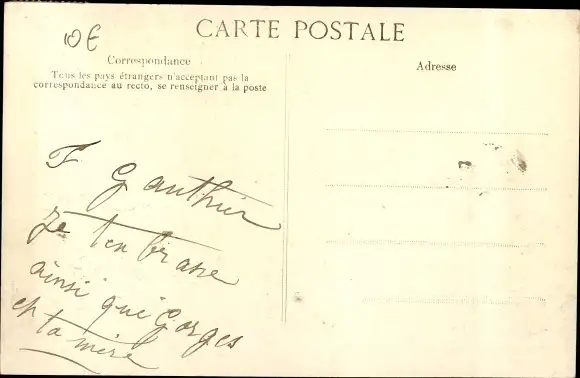 10€
CARTE POSTALE
Correspondance
Tous les pays étrangers n'acceptant pas la
correspondance au recto, se renseigner à la poste
Adresse
F Gauthier
Je t'en brasse
ainsi que Gorges
et ta mère